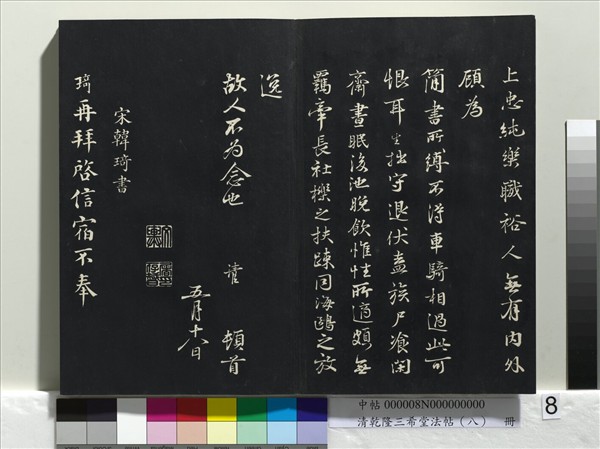 上忠純樂職裕人無有内外
顧為
簡書所縛不得車騎相過此可
恨耳
拙守退伏盍族尸飱閑
齋晝眠後池晚飲惟性所適頗無
羈牽長社櫟之扶疎同海鷗之放
逸
故人不为念也
頓首
五月十八日
宋韓琦書
琦再拜啓信宿不奉
中帖 000008N000000000
清乾隆三希堂法帖(八) 冊
8